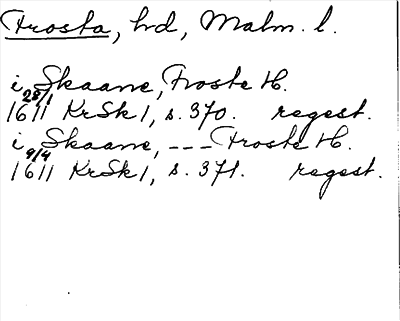 Frosta, hd, Malm. l.
i Skaane, Froste H.
28/1
1611 KrSk 1, s. 370. regest.
i Skaane, --- Froste H.
9/4
1611 KrSk 1, s. 371. regest.